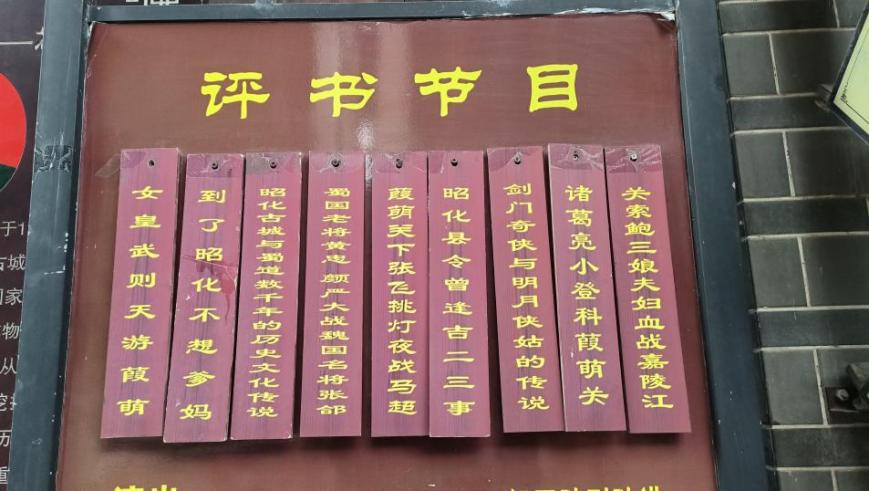 评书节目
女皇武则天游葭萌
到了昭化不想爹妈
昭化古城与蜀道数千年的历史文化传说
蜀国老将黄忠颜严大战魏国名将张郃
葭萌关下张飞挑灯夜战马超
昭化县令曾逢吉二三事
剑门奇侠与明月侠姑的传说
诸葛亮小登科葭萌关
关索鲍三娘夫妇血战嘉陵江